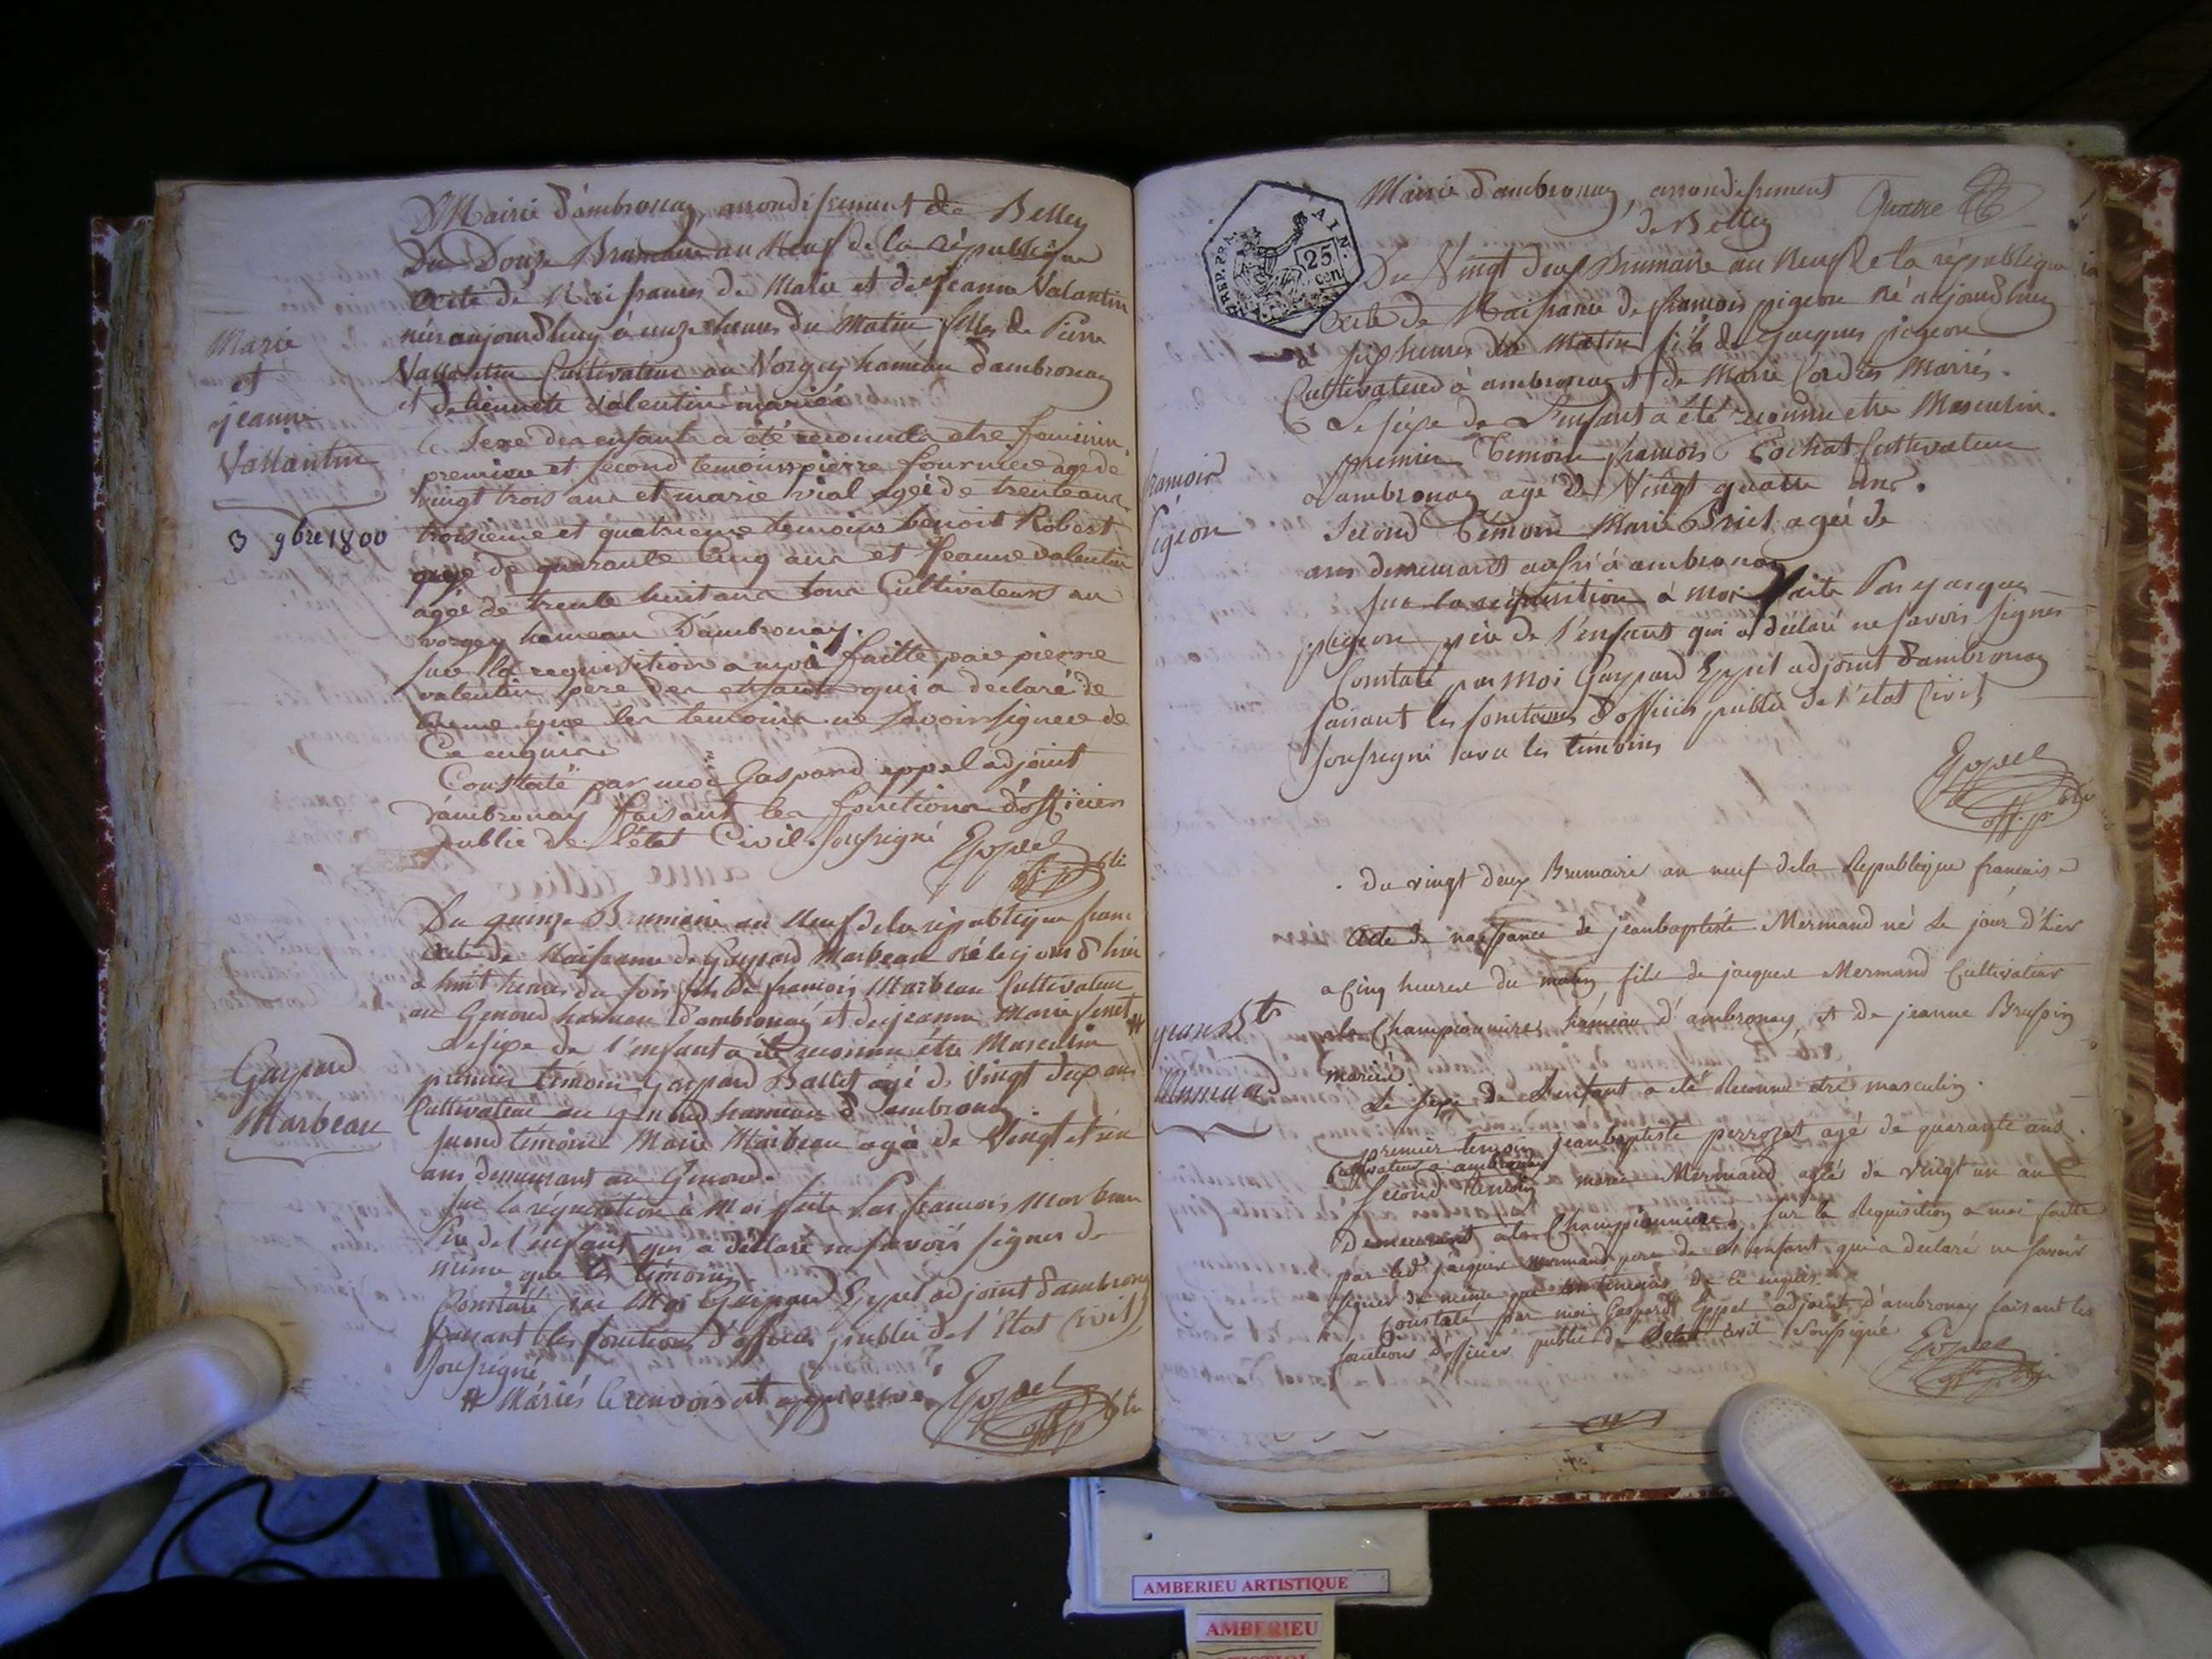 Mairie d'ambronay, arrondissement de Belley
Du Douze Brumaire an Neuf de la république
Acte de Naissances de Marie et de jeanne Valantin
nées aujourdhuy à onze heures du Matin filles de Pierre
Vallantin Cultivateur au Vorgey hameau d'ambronay
et de bennete Valentin mariés
le Sexe des enfants a été reconnu etre feminin
premier et second temoins pierre fournier agé de
vingt trois ans et marie vial agée de trente ans
troisieme et quatrieme temoins benoit Robert
agé de quarante Cinq ans et Jeanne valentin
agée de trente huit ans tous Cultivateurs au
vorgey hameau D'ambronay.
sur la requisition a moi faitte par pierre
valentin pere des enfants qui a declaré de
meme que les temoins ne savoir signer de
Ce enquis
Constaté par moi Gaspard eppel adjoint
D'ambronay faisant les fonctions d'officier
public de l'état Civil soussigné
Eppel
off. p. bli
Marie
et
jeanne
Vallantin
3 9bre 1800
Du quinze Brumaire an Neuf de la république franc
Acte de Naissance de Gaspard Marbeau né le jour d'hui
a huit heures du soir fils de françois Marbeau Cultivateur
au Genoud hameau d'ambronay et de jeanne Marie #
Le sexe de l'enfant a été reconnu etre Masculin
premier temoin Gaspard Ballet agé de Vingt deux ans
Cultivateur au genoud hameau d'ambronay
second témoin Marie Marbeau agée de Vingt et un
ans demeurant au Genoud.
sur la réquisition à Moi faite Par francois Marbeau
Pere de l'enfant qui a déclaré ne savoir signer de
même que les témoins
Constaté par Moi Gaspard Eppel adjoint d'ambronay
faisant les fonctions d'officier public de l'Etat Civil
soussigné
# Mariés le renvois est approuvé
Eppel
off. p. bli
Gaspard
Marbeau
Mairie d'ambronay, arrondissement
de Belley
Quatre
FRA.
AIN.
25
cen.
Du Vingt deux Brumaire an Neuf de la république
Acte de Naissance de françois pigeon né aujourdhuy
à six heures du Matin fils de jacques pigeon
Cultivateur à ambronay et de Marie Cordier Mariés.
Le sexe de L'enfant a été reconnu etre Masculin.
premier Temoin francois Cochat Cultivateur
d'ambronay agé de Vingt quatre ans.
Second Témoin Marie agée de
ans demeurants aussi à ambronay
sur la requisition à Moi faite Par jacques
pigeon père de l'enfant qui a déclaré ne savoir signer
Constaté par Moi Gaspard Eppel adjoint d'ambronay
faisant les fonctions d'officier public de l'état Civil
soussigné avec les témoins
Eppel
off. p. bli
françois
Pigeon
Du vingt deux Brumaire an neuf de la Republique francaise
Acte de naissance de jeanbaptiste Mermand né Le jour d'hier
a Cinq heures du matin fils de jacques Mermand Cultivateur
a la Championniere hameau d'ambronay, et de jeanne Brassin
mariés.
Le sexe de L'enfant a été Reconnu etre masculin.
premier temoin jeanbaptiste perrozet agé de quarante ans.
Cultivateur a ambronay
second temoin marie Mermand agée de vingt un ans
Demeurant a la Championniere, sur la Requisition a moi faitte
par led jacques mermand pere de l'enfant qui a declaré ne savoir
signer de meme que les temoins de ce enquis.
Constaté par moi Gaspard Eppel adjoint d'ambronay faisant les
fonctions d'officier public de l'etat civil soussigné
Eppel
off. p. bli
jean Bte
Mermand
AMBERIEU ARTISTIQUE
AMBERIEU